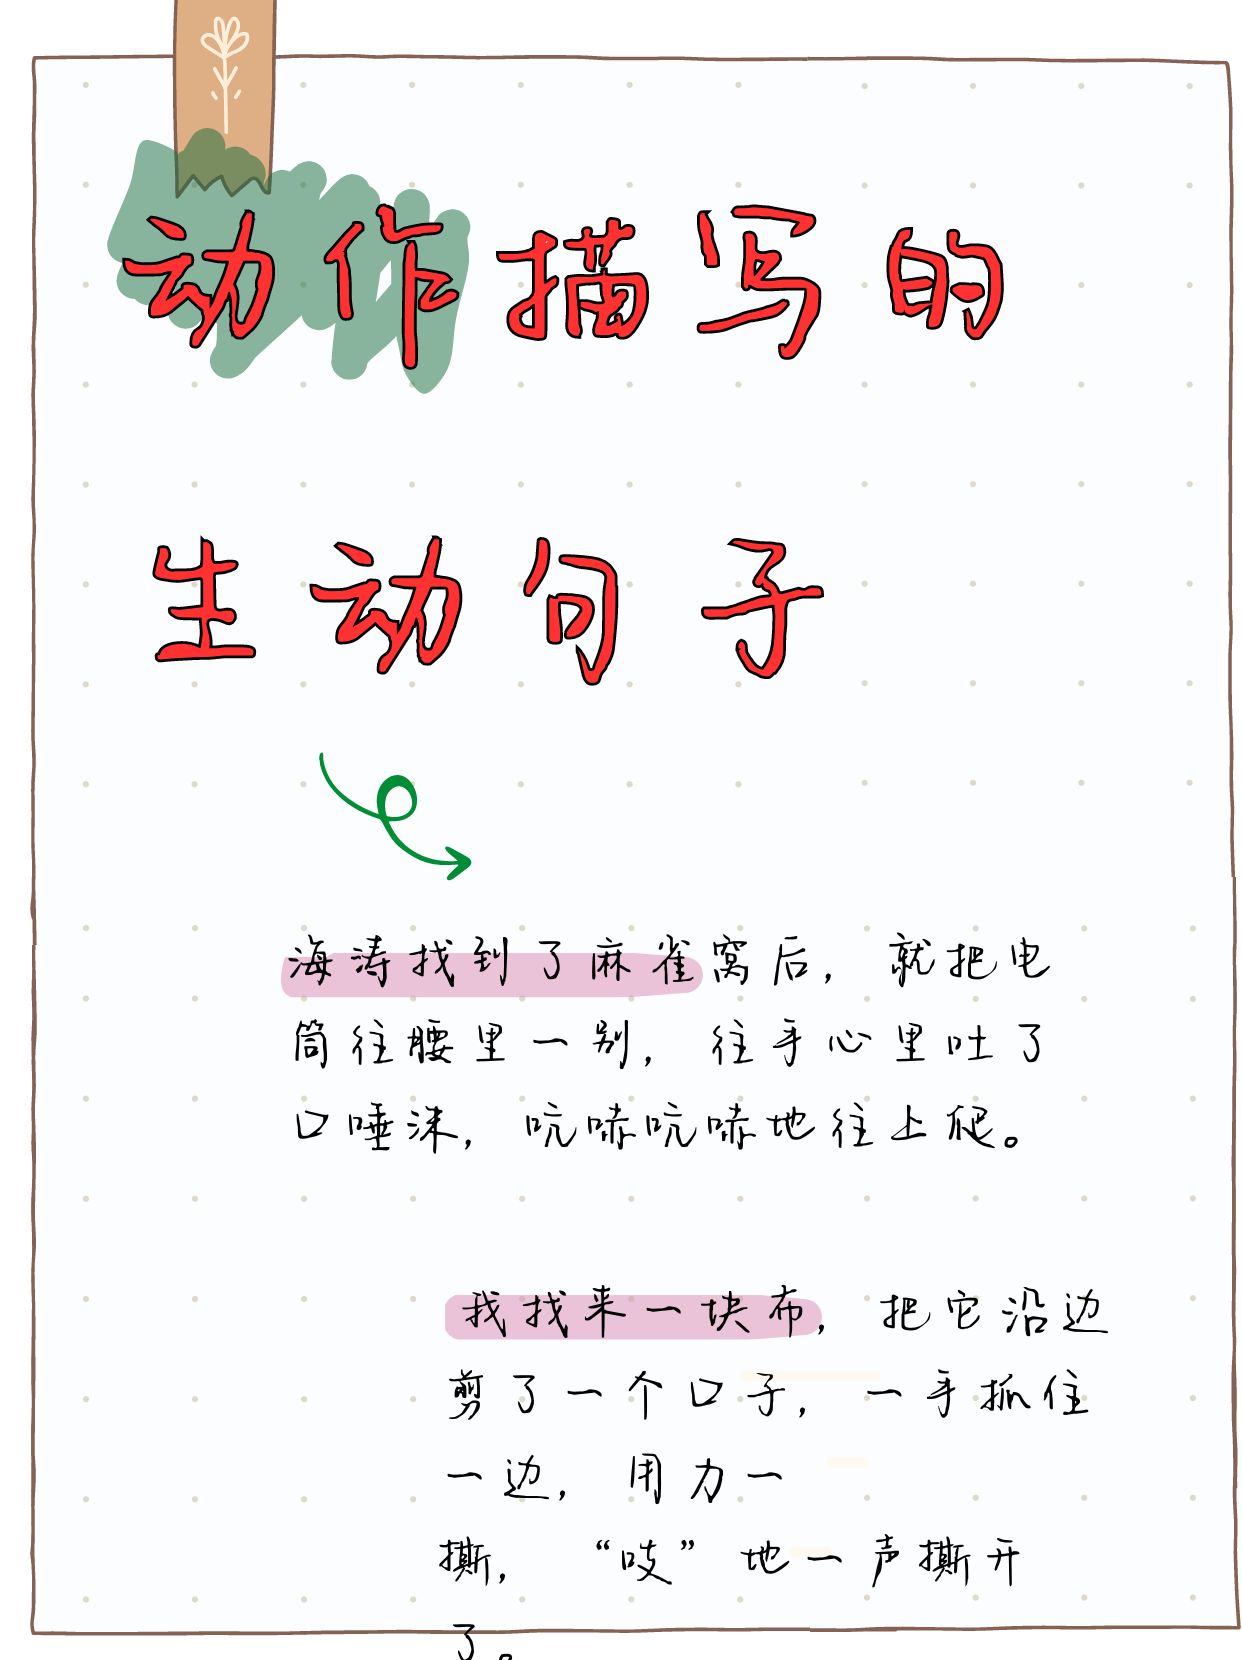 动作描写的
生动句子
海涛找到了麻雀窝后，就把电
筒往腰里一别，往手心里吐了
口唾沫，吭哧吭哧地往上爬。
我找来一块布，把它沿边
剪了一个口子，一手抓住
一边，用力一
撕，“吱”地一声撕开
了。